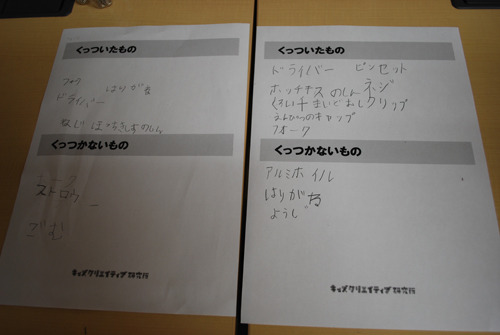 くっついたもの
はりがね
ドライバー
ねじ ほっちきすのしん
くっつかないもの
ストロウ
ごむ
キッズクリエイティブ研究所
くっついたもの
ドライバー ピンセット
ホッチキスのしん ネジ
クリップ
えんぴつのキャップ
フォーク
くっつかないもの
アルミホイル
はりがね
ようじ
キッズクリエイティブ研究所